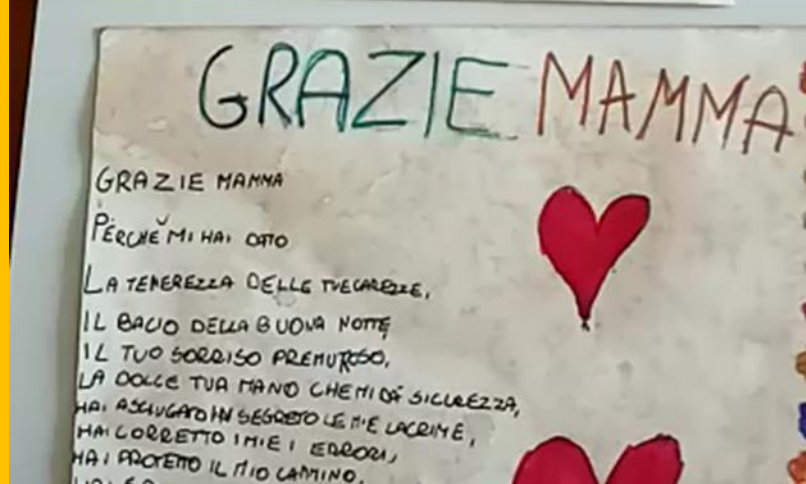 GRAZIE MAMMA
GRAZIE MAMMA
PERCHÉ MI HAI DATO
LA TENEREZZA DELLE TUE CAREZZE,
IL BACIO DELLA BUONA NOTTE
IL TUO SORRISO PREMUROSO,
LA DOLCE TUA MANO CHE MI DÀ SICUREZZA,
HAI ASCIUGATO IN SEGRETO LE MIE LACRIME,
HAI CORRETTO I MIEI ERRORI,
HAI PROTETTO IL MIO CAMMINO,